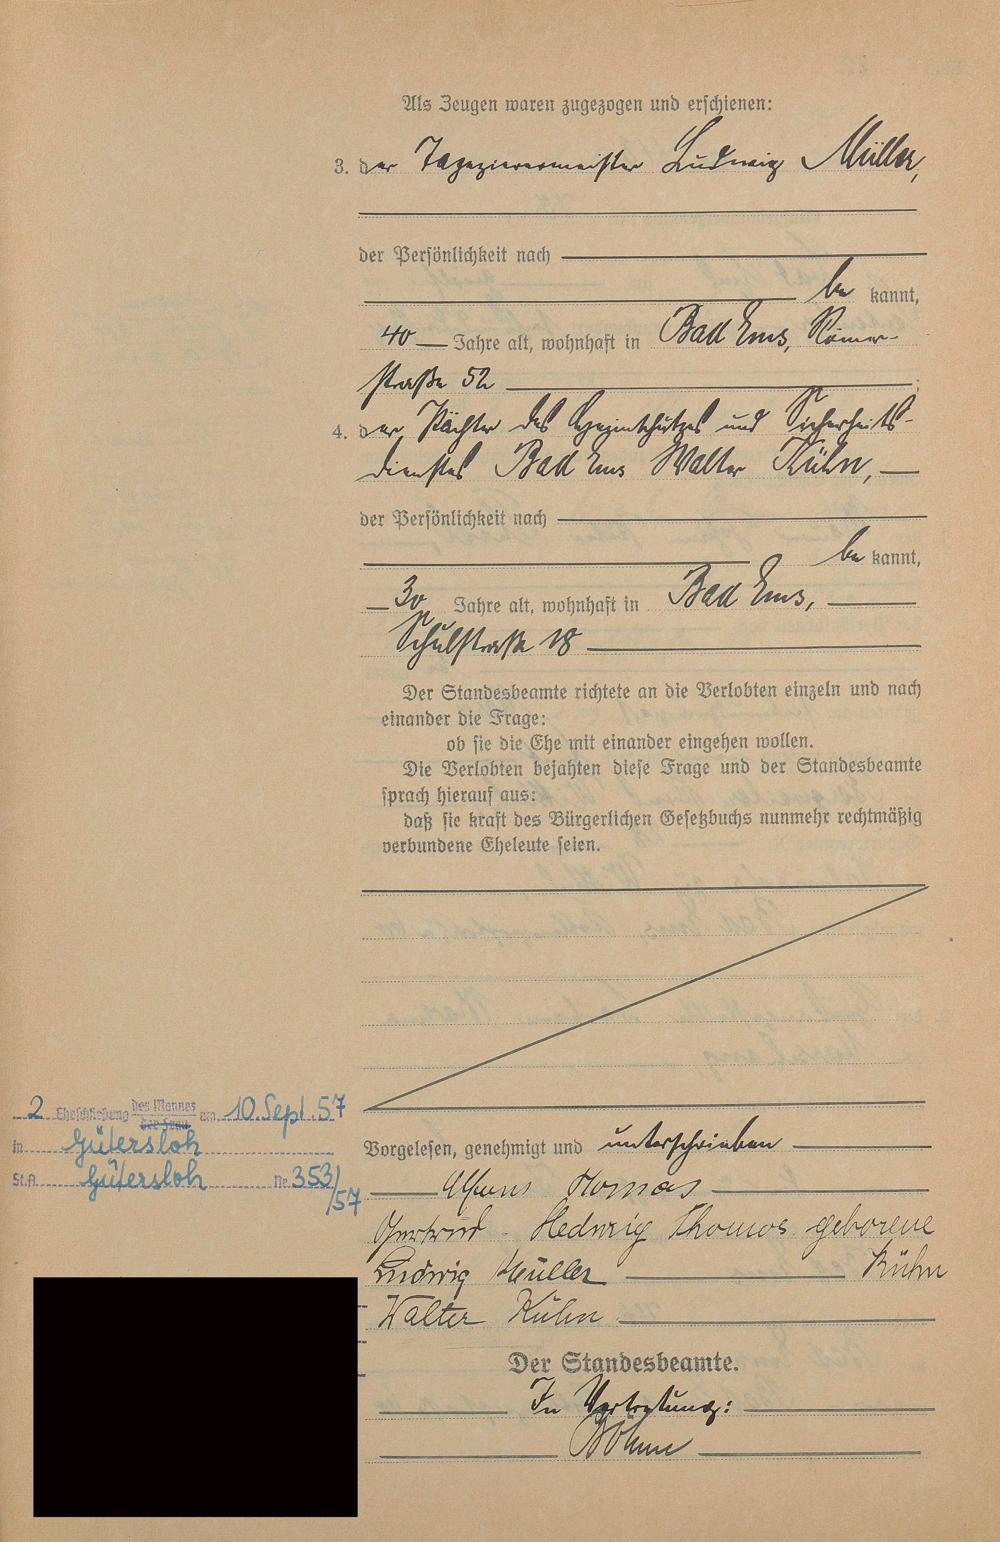 Als Zeugen waren zugezogen und erschienen:
3. der Tapezierermeister Ludwig Müller,
der Persönlichkeit nach
be kannt,
40 Jahre alt, wohnhaft in Bad Ems, Römer-
straße 52
4. der Wächter des Eigenschutzes und Sicherheits-
dienstes Bad Ems Walter Kühn,
der Persönlichkeit nach
be kannt,
30 Jahre alt, wohnhaft in Bad Ems,
Schulstraße 18
Der Standesbeamte richtete an die Verlobten einzeln und nach
einander die Frage:
ob sie die Ehe mit einander eingehen wollen.
Die Verlobten bejahten diese Frage und der Standesbeamte
sprach hierauf aus:
daß sie kraft des Bürgerlichen Gesetzbuchs nunmehr rechtmäßig
verbundene Eheleute seien.
2 Eheschließung des Mannes der Frau am 10. Sept. 57
in Gütersloh
St.A. Gütersloh Nr. 353/57
Vorgelesen, genehmigt und unterschrieben
Alfons Thomas
Gertrud Hedwig Thomas geborene
Kühn
Ludwig Müller
Walter Kühn
Der Standesbeamte.
In Vertretung:
Böhm